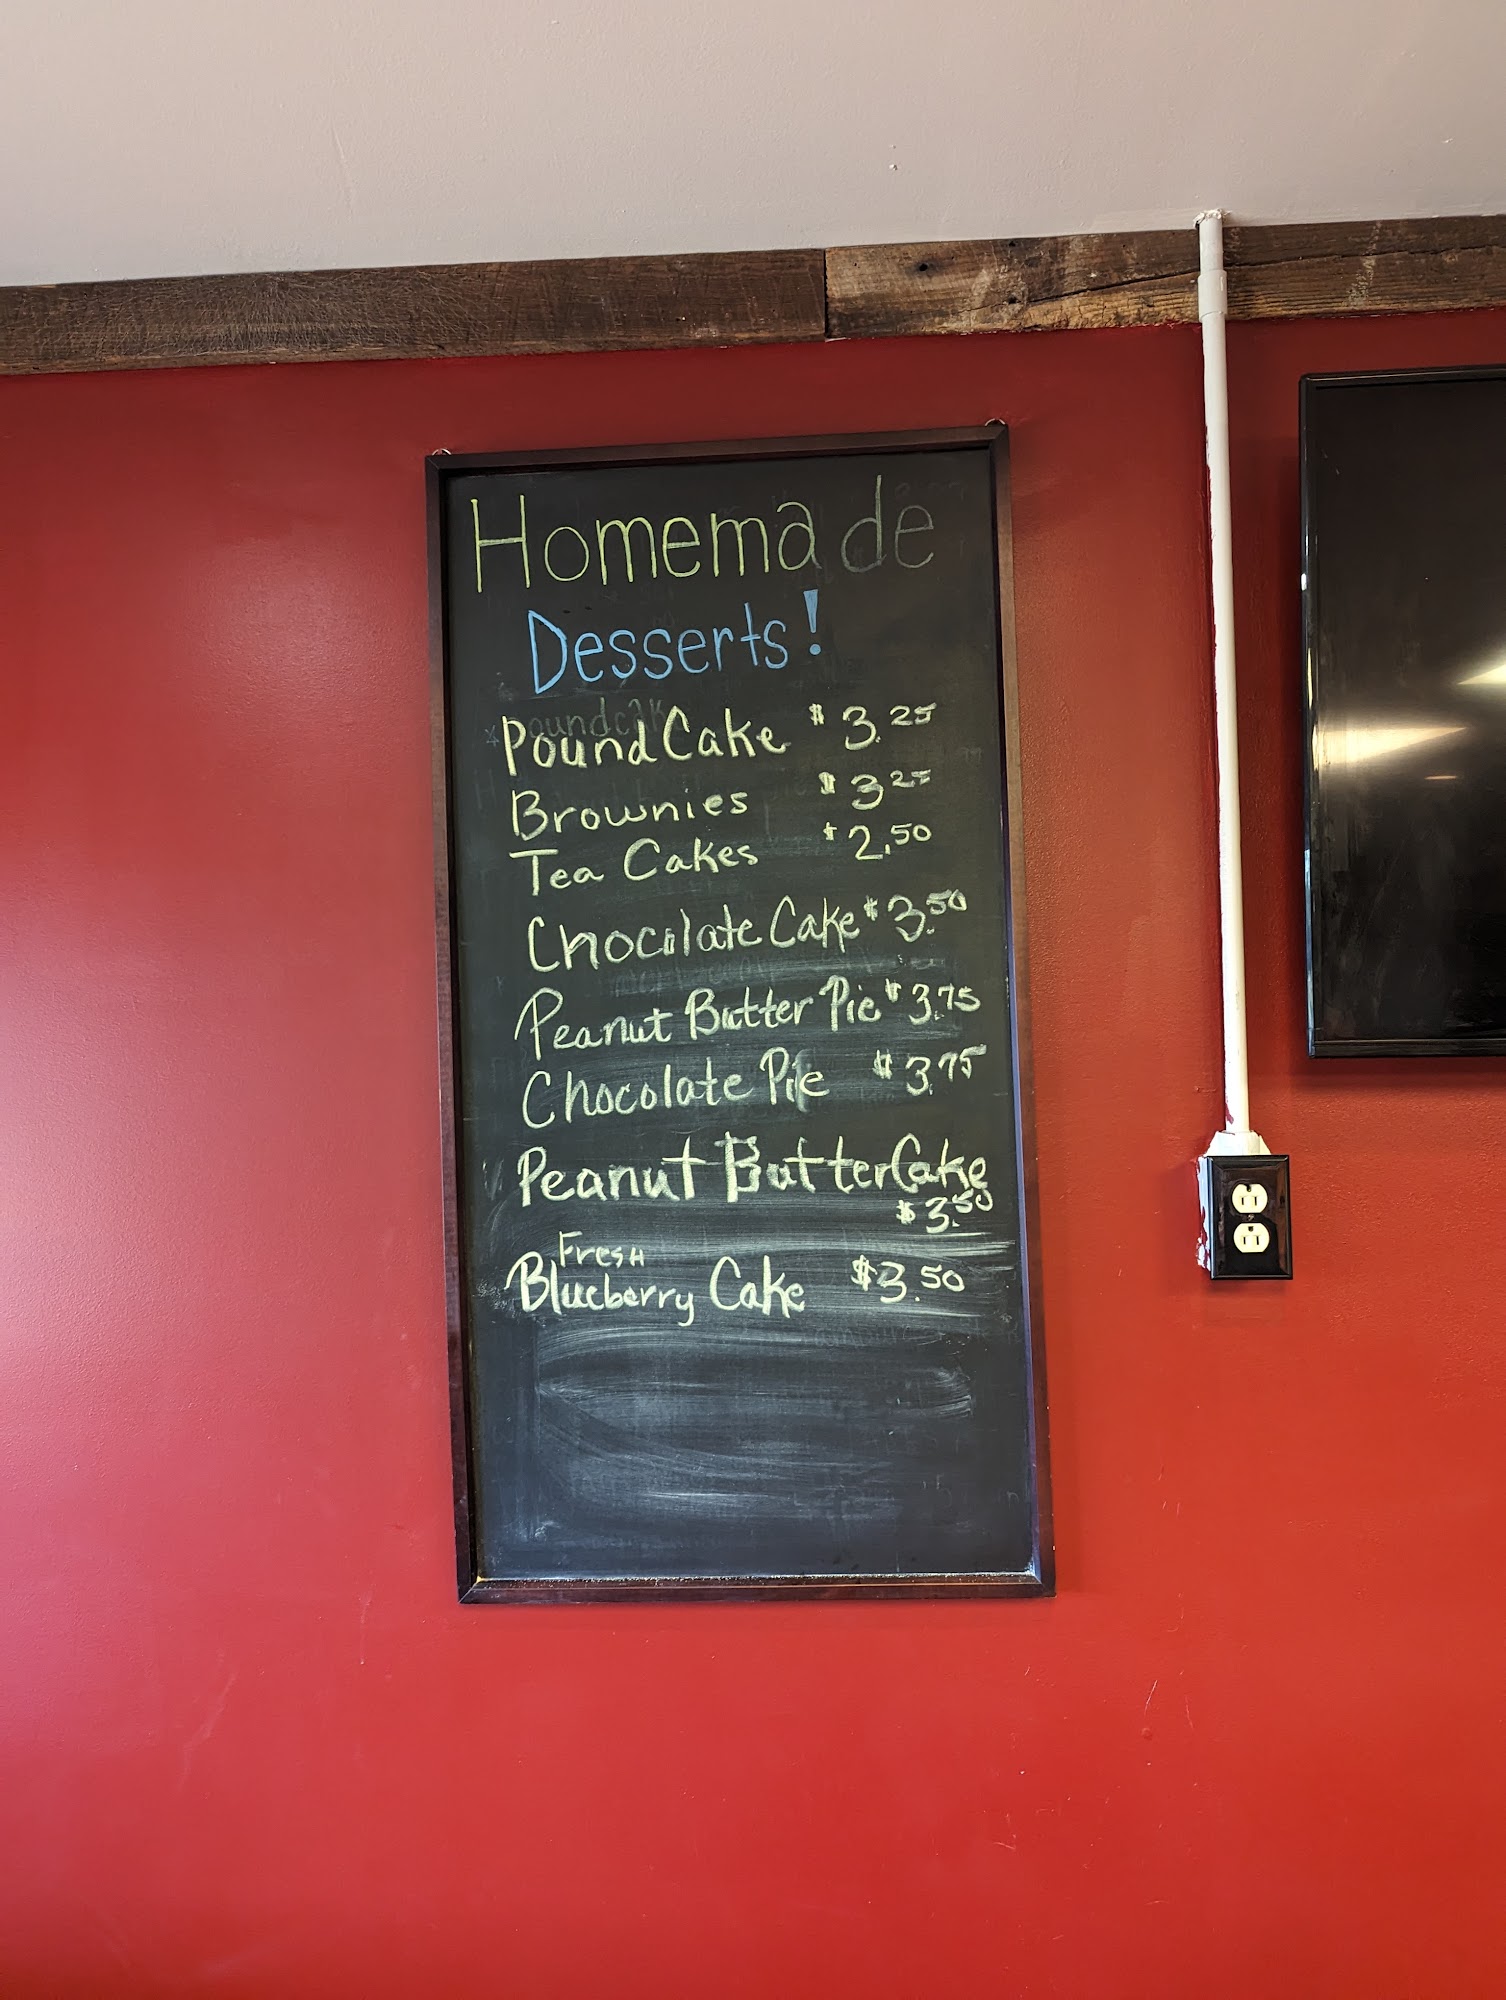 Homemade
Desserts!
Pound Cake $3.25
Brownies $3.25
Tea Cakes $2.50
Chocolate Cake $3.50
Peanut Butter Pie $3.75
Chocolate Pie $3.75
Peanut Butter Cake
$3.50
Fresh
Blueberry Cake $3.50